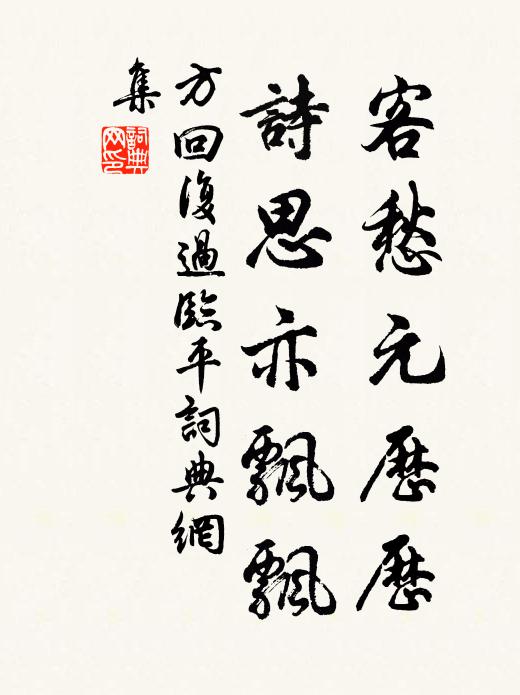 客愁元歷歷
詩思亦飄飄
方回復過臨平詞典網
集
詞典
网印